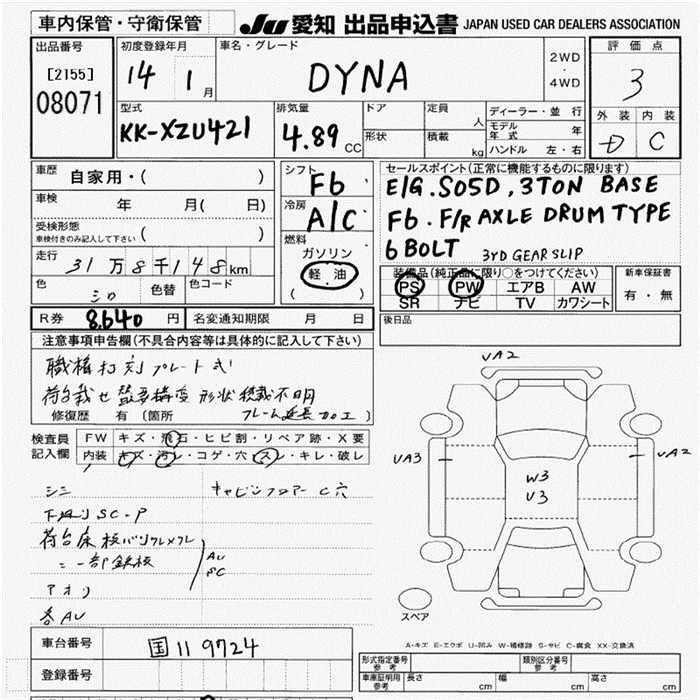 車内保管・守衛保管
JU 愛知 出品申込書 JAPAN USED CAR DEALERS ASSOCIATION
出品番号
[2155]
08071
初度登録年月
14 1月
車名・グレード
DYNA
2WD
・
4WD
評価点
3
外装 内装
D C
型式
KK-XZU421
排気量
4.89 CC
ドア
形状
定員 人
積載 kg
ディーラー・並行
モデル年式 年
ハンドル 左・右
車歴 自家用・( )
車検 年 月( 日)
受検形態
車検付きのみ記入して下さい ( )
走行 31万8千148km
色 シロ 色替 色コード
シフト
F6
冷房
A/C
燃料
ガソリン
軽・油
( )
セールスポイント(正常に機能するものに限ります)
E/G. S05D, 3TON BASE
F6. F/R AXLE DRUM TYPE
6 BOLT 3YD GEAR SLIP
装備品(純正品に限り○をつけてください)
PS PW エアB AW
SR ナビ TV カワシート
新車保証書
有・無
R券 8,640円 名変通知期限 月 日
後日品
注意事項申告欄(不具合内容等は具体的に記入して下さい)
職権打刻プレート式
形状積載不明
修復歴 有 (箇所 フレーム延長加工)
検査員
記入欄
FW キズ・飛石・ヒビ割・リペア跡・X要
内装 キズ・汚レ・コゲ・穴・スレ・キレ・破レ
キャビンフロアー C穴
下廻り SC-P
荷台床
一部鉄板
AU
SC
アオリ
各AU
UA2
UA3
UA2
W3
U3
スペア
A-キズ E-エクボ U-凹み W-補修跡 S-サビ C-腐食 XX-交換済
車台番号 国11 9724
登録番号
形式指定番号
参考
類別区分番号
参考
車庫証明用
参考
長さ cm 幅 cm 高さ cm